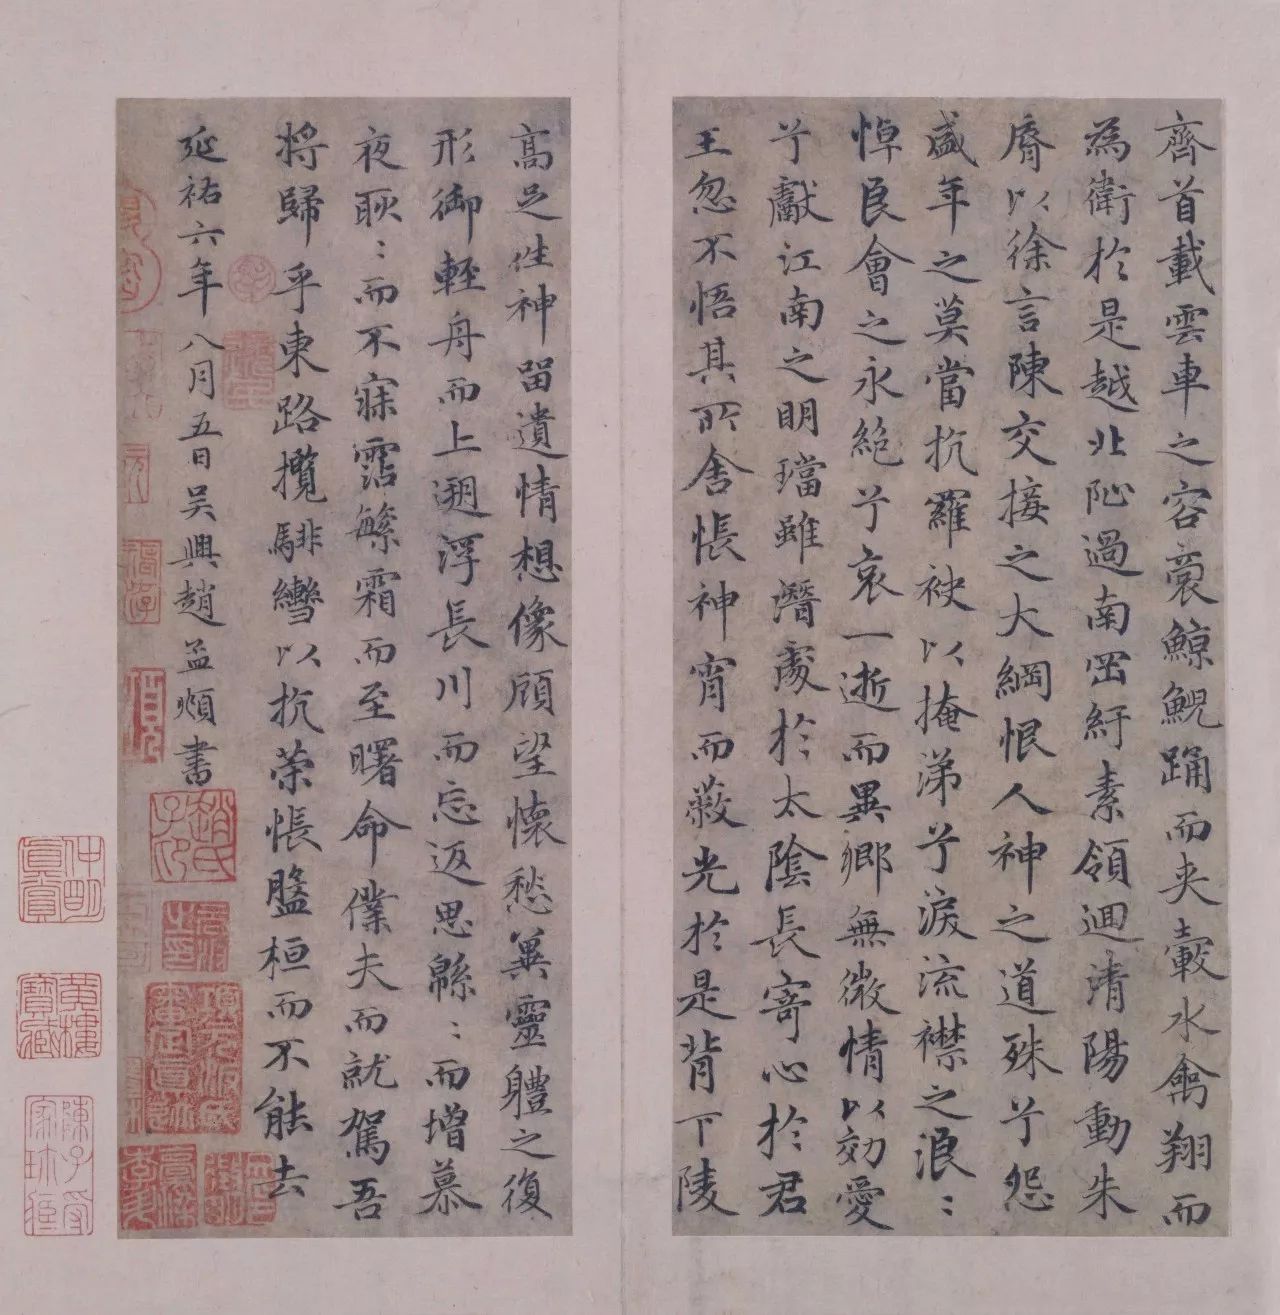 齊首載雲車之容裔鯨鯢踊而夾轂水禽翔而
為衛於是越北沚過南岡紆素領迴清陽動朱
脣以徐言陳交接之大綱恨人神之道殊兮怨
盛年之莫當抗羅袂以掩涕兮淚流襟之浪〻
悼良會之永絕兮哀一逝而異鄉無微情以効愛
兮獻江南之明璫雖潛處於太陰長寄心於君
王忽不悟其所舍悵神宵而蔽光於是背下陵
高足往神留遺情想像顧望懷愁冀靈體之復
形御輕舟而上遡浮長川而忘返思緜〻而增慕
夜耿〻而不寐霑繁霜而至曙命僕夫而就駕吾
將歸乎東路攬騑轡以抗策悵盤桓而不能去
延祐六年八月五日吳興趙孟頫書
項元汴氏審定真跡